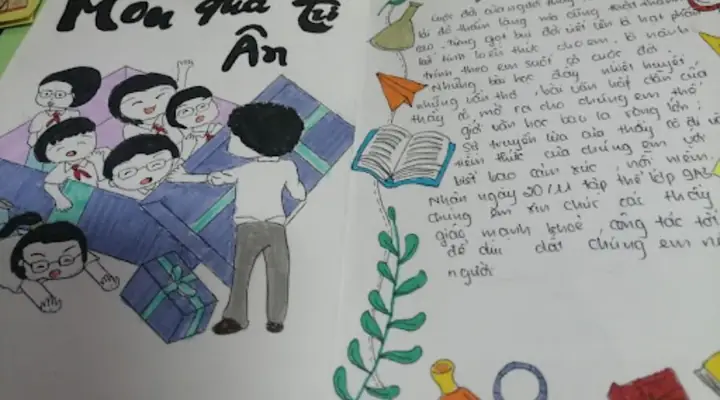 Món quà tri
Ân
Cuộc đời của người thầy
lời đò thầm lặng mà cũng
cao. Từng giọt bụi đời viết lên bị hạt phấn
kết tinh tri thức cho em, bị hành
trình theo em suốt cả cuộc đời.
Những bài học đầy nhiệt huyết,
những vần thơ, bài văn hấp dẫn của
thầy cô mở ra cho chúng em thế
giới văn học bao la rộng lớn.
Sự truyền lửa của thầy cô đi vào
tiềm thức của chúng em với
biết bao cảm xúc, nỗi niềm.
Nhân ngày 20/11 tập thể lớp 9A
chúng em xin chúc các thầy
giáo mạnh khoẻ, công tác tốt
để dìu dắt chúng em
người